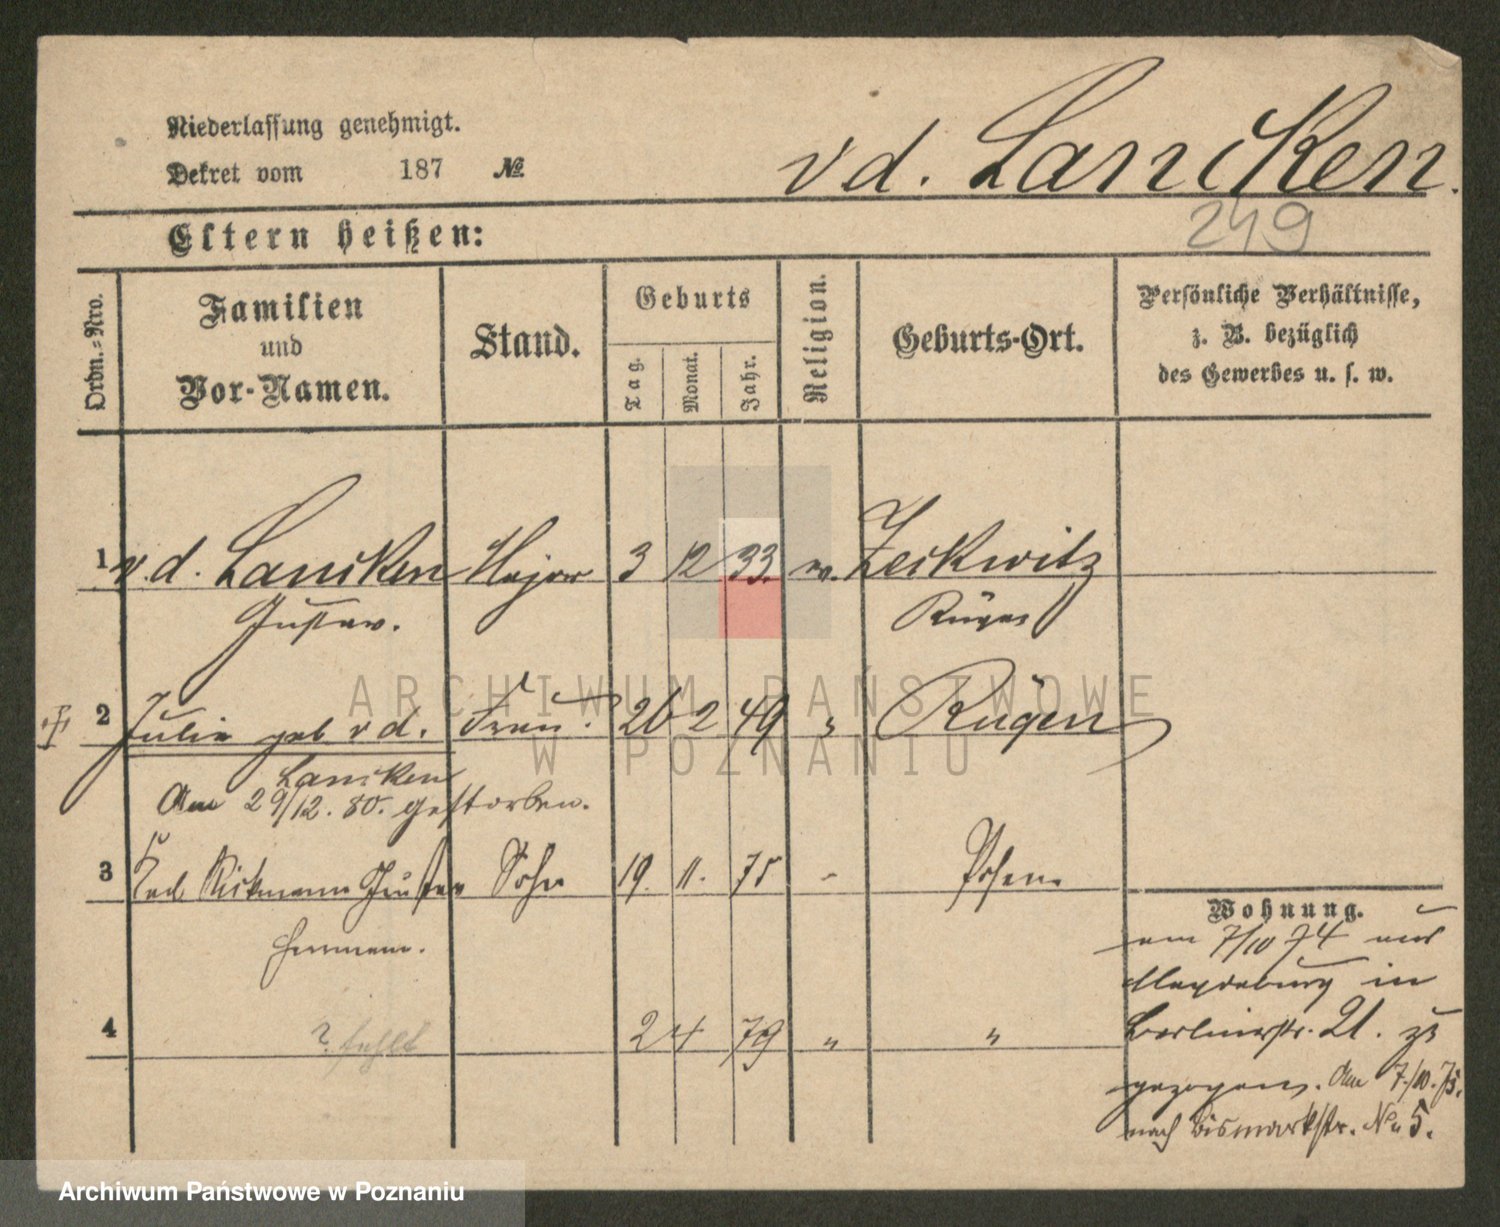 Niederlassung genehmigt.
Dekret vom 187 №
vd. Lancken.
249
Eltern heißen:
Ordn.-Nro.
Familien
und
Vor-Namen.
Stand.
Geburts
Tag.
Monat.
Jahr.
Religion.
Geburts-Ort.
Persönliche Verhältnisse,
z. B. bezüglich
des Gewerbes u. s. w.
1 v. d. Lancken Major 3 12 33. ev.
Gustav. Rügen
2 Julie geb v d. Frau. 26 2 49 " Rügen
Lancken
Am 29/12. 80. gestorben.
3 Carl Gustav Sohn 19. 11. 75 - Posen.
Herrmann.
4 ? fehlt 2 4 79 " "
Wohnung.
am 7/10 74 aus
Magdeburg in
Berlinerstr. 21. zu
gezogen. Am 7./10. 75.
nach Bismarkstr. No 5.
ARCHIWUM PAŃSTWOWE
W POZNANIU
Archiwum Państwowe w Poznaniu